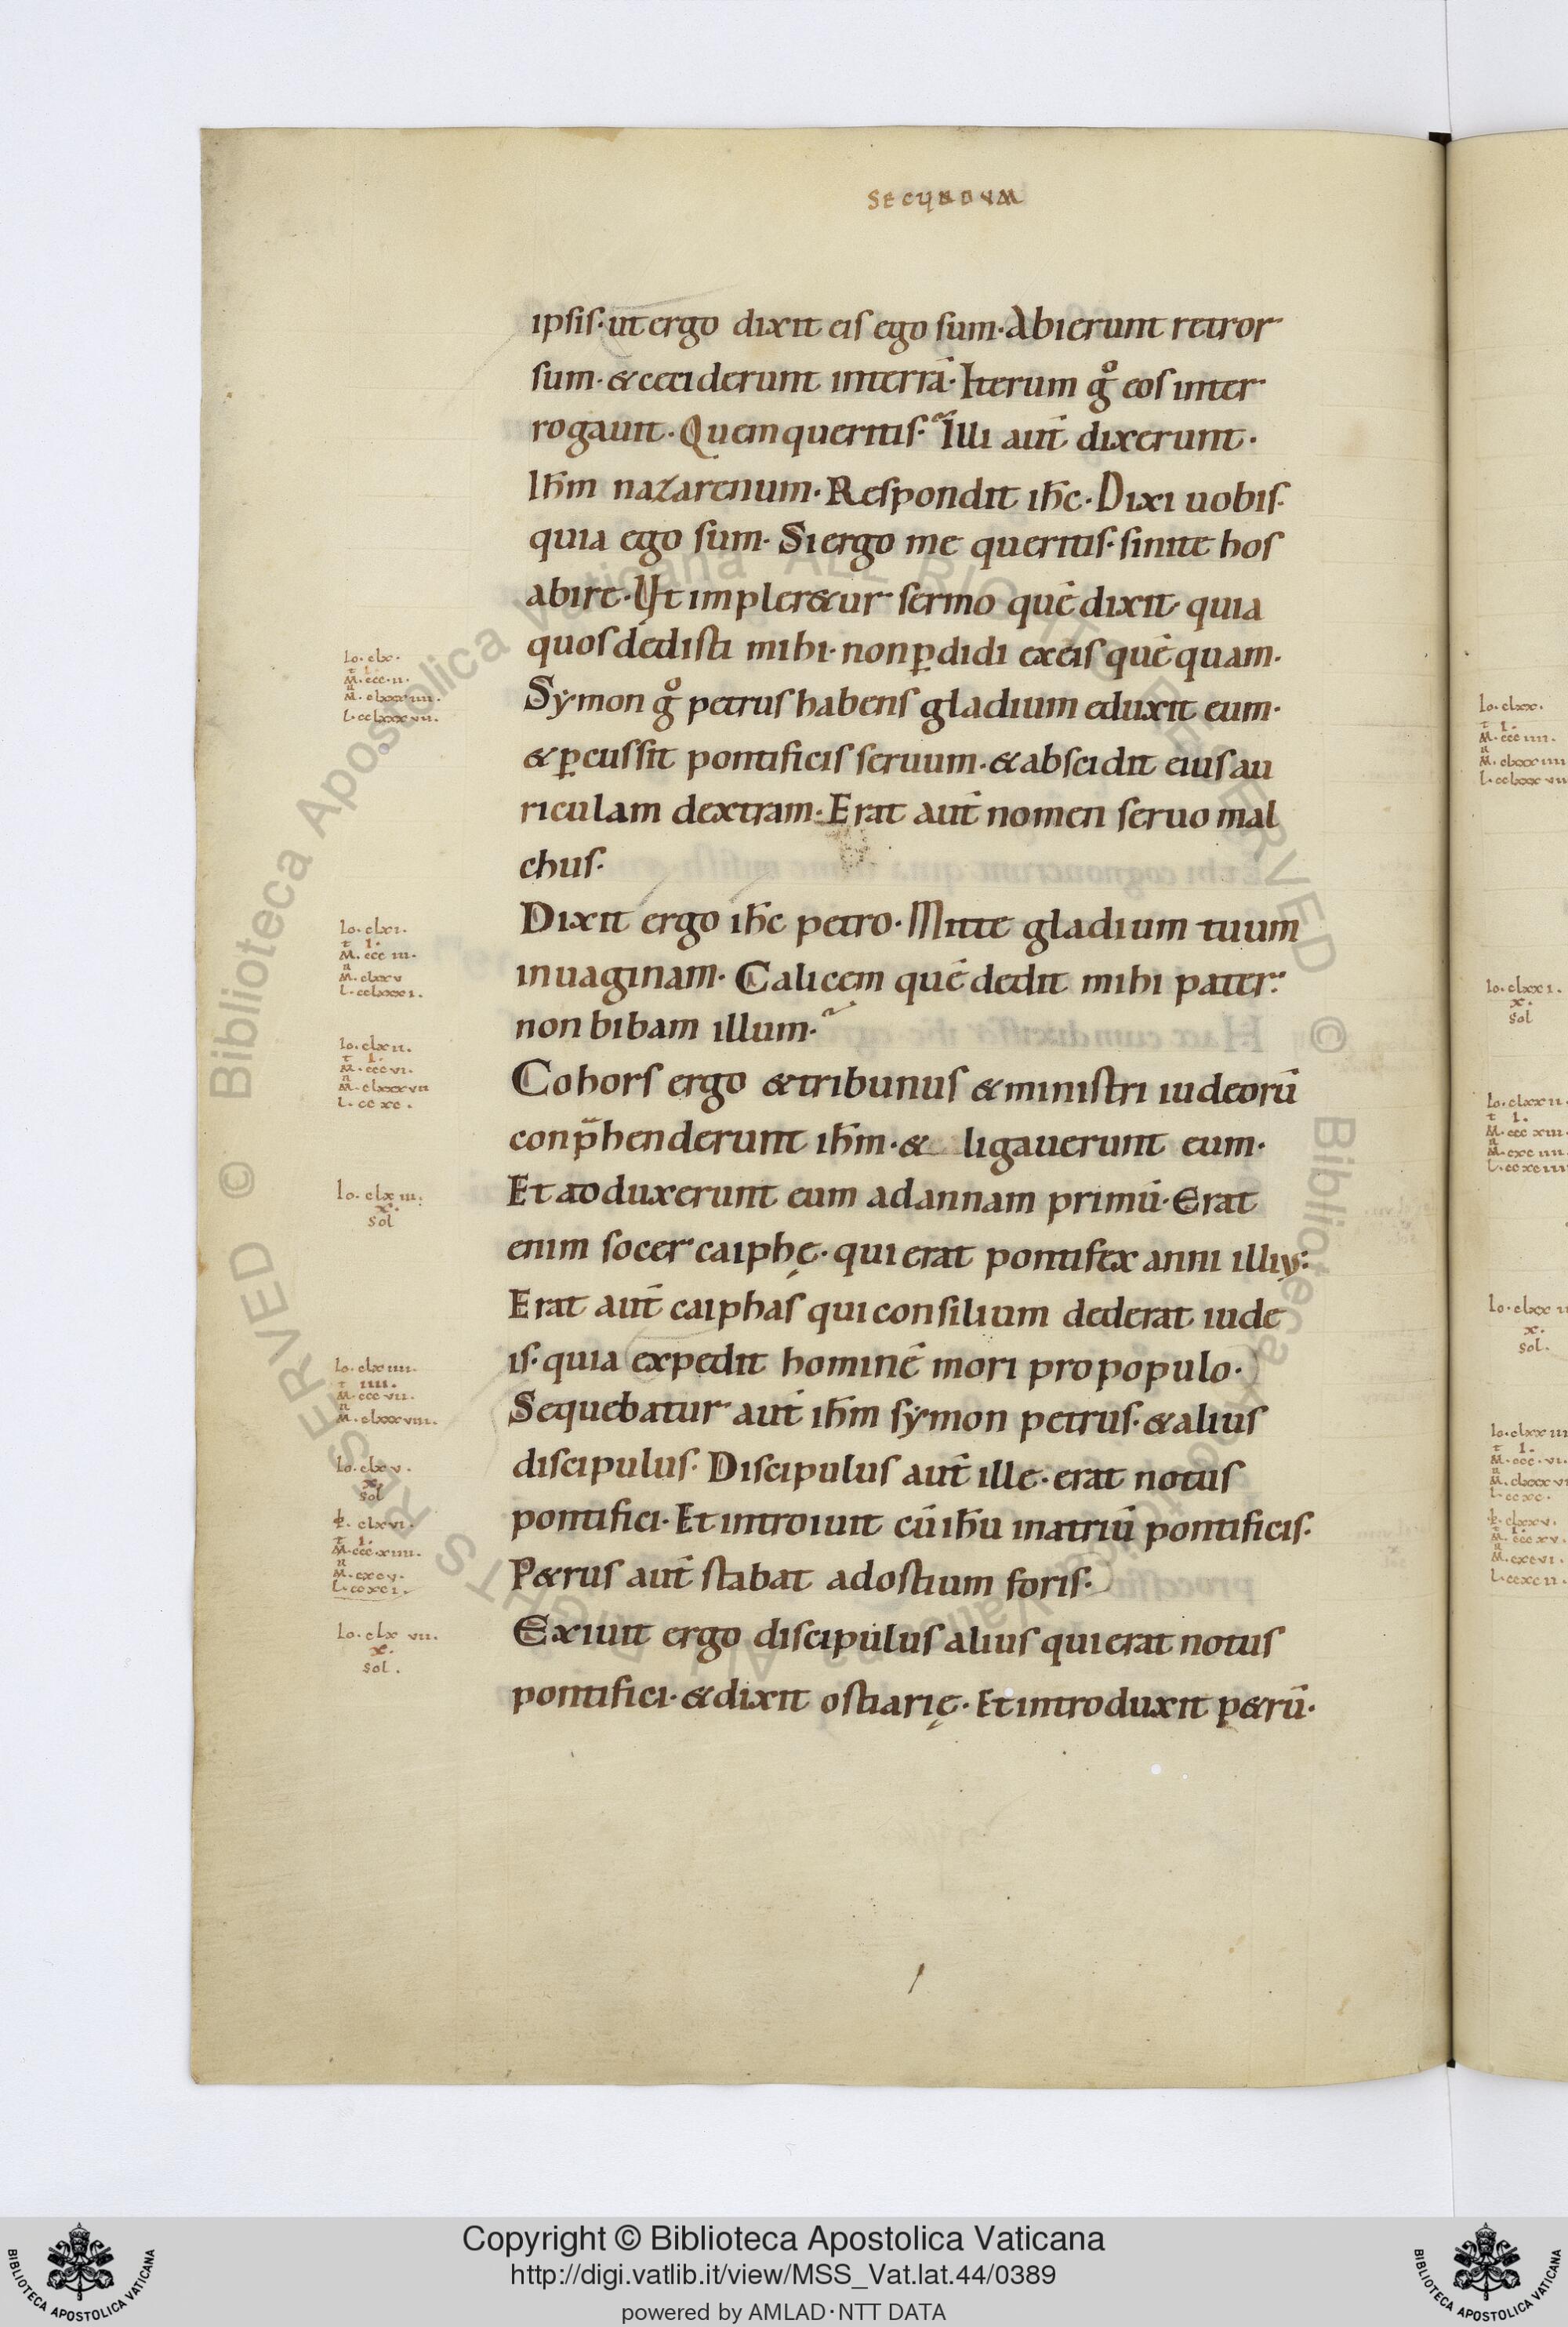 SECUNDUM
ipsis· ut ergo dixit eis ego sum· Abierunt retror
sum· & ceciderunt in terrā· Iterum gº eos inter
rogauit· Quem queritis· Illi aut̄ dixerunt·
Ihm̄ nazarenum· Respondit ihc̄· Dixi uobis·
quia ego sum· Si ergo me queritis· sinite hos
abire· Ut impler&ur sermo quē dixit· quia
quos dedisti mihi· non p̱didi ex eis quē quam·
Sẏmon gº petrus habens gladium eduxit eum·
& p̱cussit pontificis seruum· & abscidit eius au
riculam dextram· Erat aut̄ nomen seruo mal
chus·
Dixit ergo ihc̄ petro· Mitte gladium tuum
in uaginam· Calicem quē dedit mihi pater·
non bibam illum·
Cohors ergo & tribunus & ministri iudeorū
conp̄henderunt ihm̄· & ligauerunt eum·
Et adduxerunt eum ad annam primū· Erat
enim socer caiphę· qui erat pontifex anni illius·
Erat aut̄ caiphas qui consilium dederat iude
is· quia expedit hominē mori pro populo·
Sequebatur aut̄ ihm̄ sẏmon petrus· & alius
discipulus· Discipulus aut̄ ille· erat notus
pontifici· Et introiuit cū ihū in atriū pontificis·
P&rus aut̄ stabat ad ostium foris·
Exiuit ergo discipulus alius qui erat notus
pontifici· & dixit ostiarię· Et introduxit p&rū·
Io· clx·
t I·
M· ccc· II·
L· cclxxxvii·
Io· clxi·
t I·
M· ccc III·
n
M· clxxv
L· cclxxxi·
Io· clxii·
t I·
M· cccvi·
n
M· clxxxvii
L· ccxc·
Io· clxiii·
x·
sol
Io· clxiiii·
t IIII·
M· cccvii·
n
M· clxxxviii·
Io· clxv·
x·
sol
clxvi·
t I·
M· cccxiiii·
n
M· cxcv·
L· ccxci·
Io· clxvii·
x·
sol·
Io· clxx·
t I·
M· cccIIII·
n
Io· clxxi·
x·
sol
Io· clxxii·
t I·
M· cccxiii·
n
x·
sol·
Copyright © Biblioteca Apostolica Vaticana
http://digi.vatlib.it/view/MSS_Vat.lat.44/0389
powered by AMLAD·NTT DATA
BIBLIOTECA APOSTOLICA VATICANA
BIBLIOTECA APOSTOLICA VATICANA